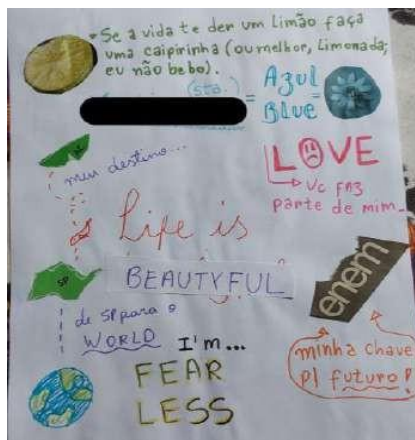 • Se a vida te der um limão faça
uma caipirinha (ou melhor, Limonada,
eu não bebo).
(sta.)
= Azul
Blue =
LOVE
Vc FAZ
parte de mim_
meu destino...
Life is
SP
BEAUTYFUL
enem
de SP para o
WORLD
I'm...
FEAR
LESS
minha chave
p/ futuro!